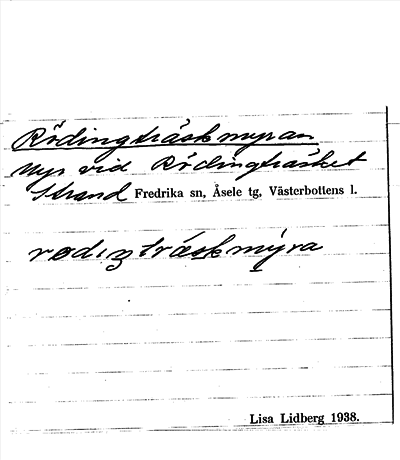 Rödingträskmyran
Myr vid Rödingträsket
Strand Fredrika sn, Åsele tg, Västerbottens l.
rødıŋtræskmýra
Lisa Lidberg 1938.